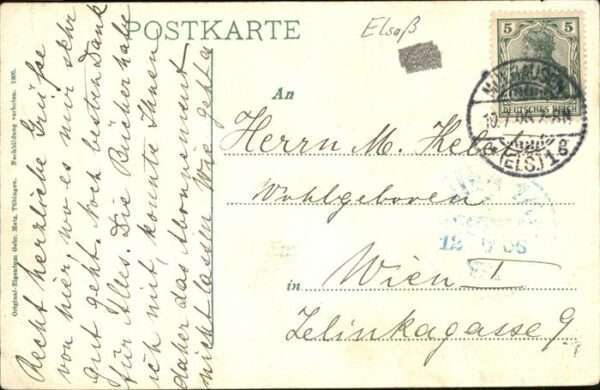 POSTKARTE
Elsaß
5
DEUTSCHES REICH
MÜLHAUSEN
(ELS.) 1
An
Herrn M.
Wohlgeboren
in Wien I
Zelinkagasse 9
Recht herzliche Grüße
von hier, wo es mir sehr
gut geht. Noch besten Dank
für Alles. Die Bücher habe
ich mit, konnte Ihnen
daher das Abonnement
nicht lassen. Wie geht's
Original-Eigentum Gebr. Metz, Tübingen. Nachbildung verboten. 1905.